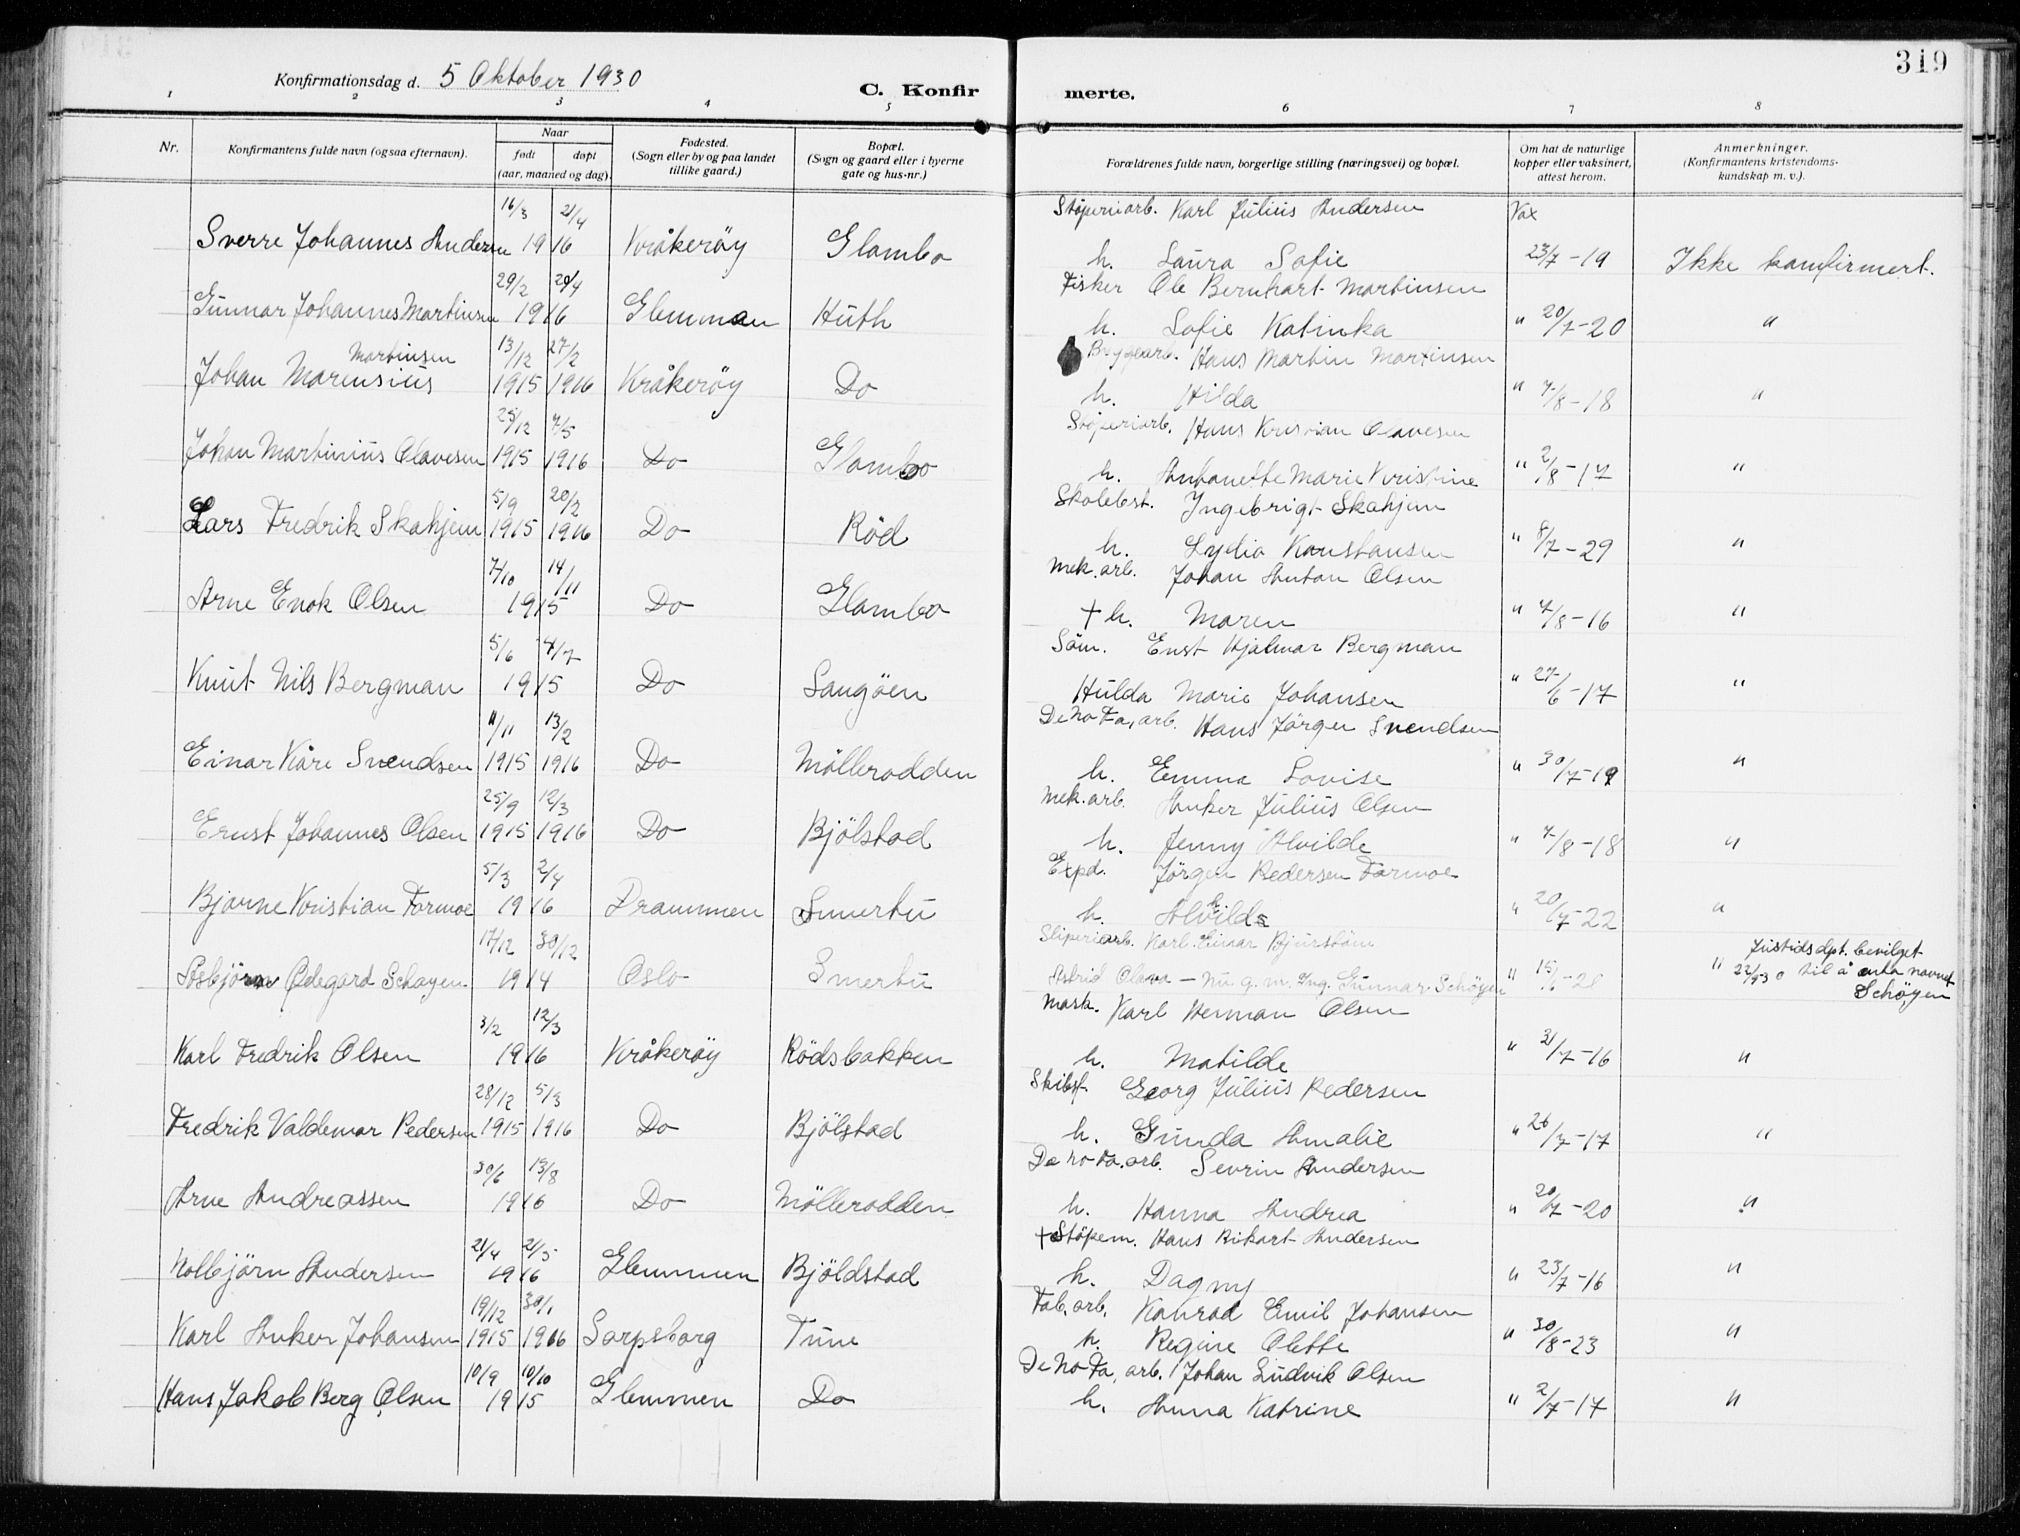 319
Konfirmationsdag d. 5 Oktober 1930 C. Konfir merte.
1 2 3 4 5 6 7 8
Nr. Konfirmantens fulde navn (ogsaa efternavn). Naar født døpt (aar, maaned og dag). Fødested. (Sogn eller by og paa landet tillike gaard.) Bopæl. (Sogn og gaard eller i byerne gate og hus-nr.) Forældrenes fulde navn, borgerlige stilling (næringsvei) og bopæl. Om hat de naturlige kopper eller vaksinert, attest herom. Anmerkninger. (Konfirmantens kristendoms-kundskap m. v.).
16/3 21/4 Støperiarb. Karl Julius Andersen Vax
Sverre Johannes Andersen 1916 Kråkerøy Glombo h. Laura Sofie 23/7-19 Ikke konfirmert.
29/2 24/4 Fisker Ole Bernhart Martinsen
Gunnar Johannes Martinsen 1916 Glemmen Huth h. Sofie Katinka " 20/7-20 "
Martinsen 13/12 27/2 Bryggearb. Hans Martin Martinsen
Johan Marensius 1915 1916 Kråkerøy Do h. Hilda " 7/8-18 "
25/12 7/5 Støperiarb. Hans Kristian Olavesen
Johan Martinius Olavesen 1915 1916 Do Glombo h. Antonette Marie Kristine " 2/8-17 "
5/9 20/2 Skolebest. Ingebrigt Skahjem
Lars Fredrik Skahjem 1915 1916 Do Röd h. Lydia Konstansen " 8/7-29 "
7/10 14/11 Mek. arb. Johan Anton Olsen
Arne Enok Olsen 1915 Do Glombo + h. Maren " 7/8-16 "
5/6 4/7 Söm. Enst Hjalmar Bergman
Knut Nils Bergman 1915 Do Langöen Hulda Marie Johansen " 27/6-17 "
11/11 13/2 De No Fa, arb. Hans Jörgen Svendsen
Einar Kåre Svendsen 1915 1916 Do Möllerodden h. Emma Lovise " 30/7-19 "
25/9 12/3 Mek. arb. Anker Julius Olsen
Ernst Johannes Olsen 1915 1916 Do Bjölstad h. Jenny Alvilde " 7/8-18 "
5/3 2/4 Expd. Jörgen Pedersen Formoe
Bjarne Kristian Formoe 1916 Drammen Smertu h. Alvilde " 20/7-22 "
17/12 30/12 Sliperiarb. Karl Einar Bjurstöm Justidsdpt. bevilget
Asbjörn Ödegard Schøyen 1914 Oslo Smertu Astrid Olava - nu g. m. Ing. Gunnar Schöyen " " til å anta navnet
Schöyen
3/2 12/3 Mask. Karl Herman Olsen
Karl Fredrik Olsen 1916 Kråkerøy Rödsbakken h. Matilde " 31/7-16 "
28/12 5/3 Skibsf. Georg Julius Pedersen
Fredrik Valdemar Pedersen 1915 1916 Do Bjölstad h. Gunda Amalie " 26/7-17 "
30/6 13/8 De No Fa. arb. Sevrin Andersen
Arne Andreassen 1916 Do Möllerodden h. Hanna Andrea " 20/7-20 "
21/4 21/5 + Støpem. Hans Rikart Andersen
Kolbjörn Andersen 1916 Glemmen Bjöldstad h. Dagny " 23/7-16 "
19/12 30/1 Fab. arb. Konrad Emil Johansen
Karl Anker Johansen 1915 1916 Sarpsborg Tune h. Regine Olette " 30/8-23 "
10/9 10/10 De No Fa, arb. Johan Ludvik Olsen
Hans Jakob Berg Olsen 1915 Glemmen Do h. Anna Katrine " 2/7-17 "